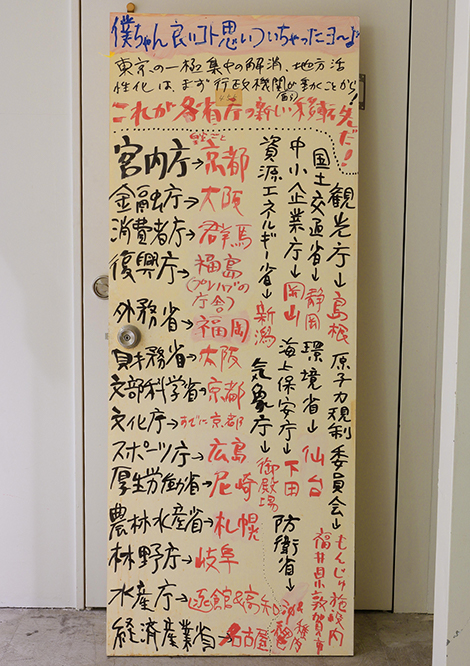 僕ちゃん良いコト思いついちゃったヨ〜ょ
東京の一極集中の解消、地方活
性化は、まず行政機関が動くことから!
これが各省庁の新しい移転先だ!
宮内庁→京都
金融庁→大阪
消費者庁→群馬
復興庁→福島
(プレハブの庁舎)
外務省→福岡
財務省→大阪
文部科学省→京都
文化庁→すでに京都
スポーツ庁→広島
厚生労働省→尼崎
農林水産省→札幌
林野庁→岐阜
水産庁→函館&高知
経済産業省→名古屋
観光庁→島根
国土交通省→静岡
中小企業庁→岡山
資源エネルギー省→新潟
原子力規制委員会→もんじゅ施設内
福井県敦賀市
環境省→仙台
海上保安庁→下田
気象庁→御殿場
防衛省→